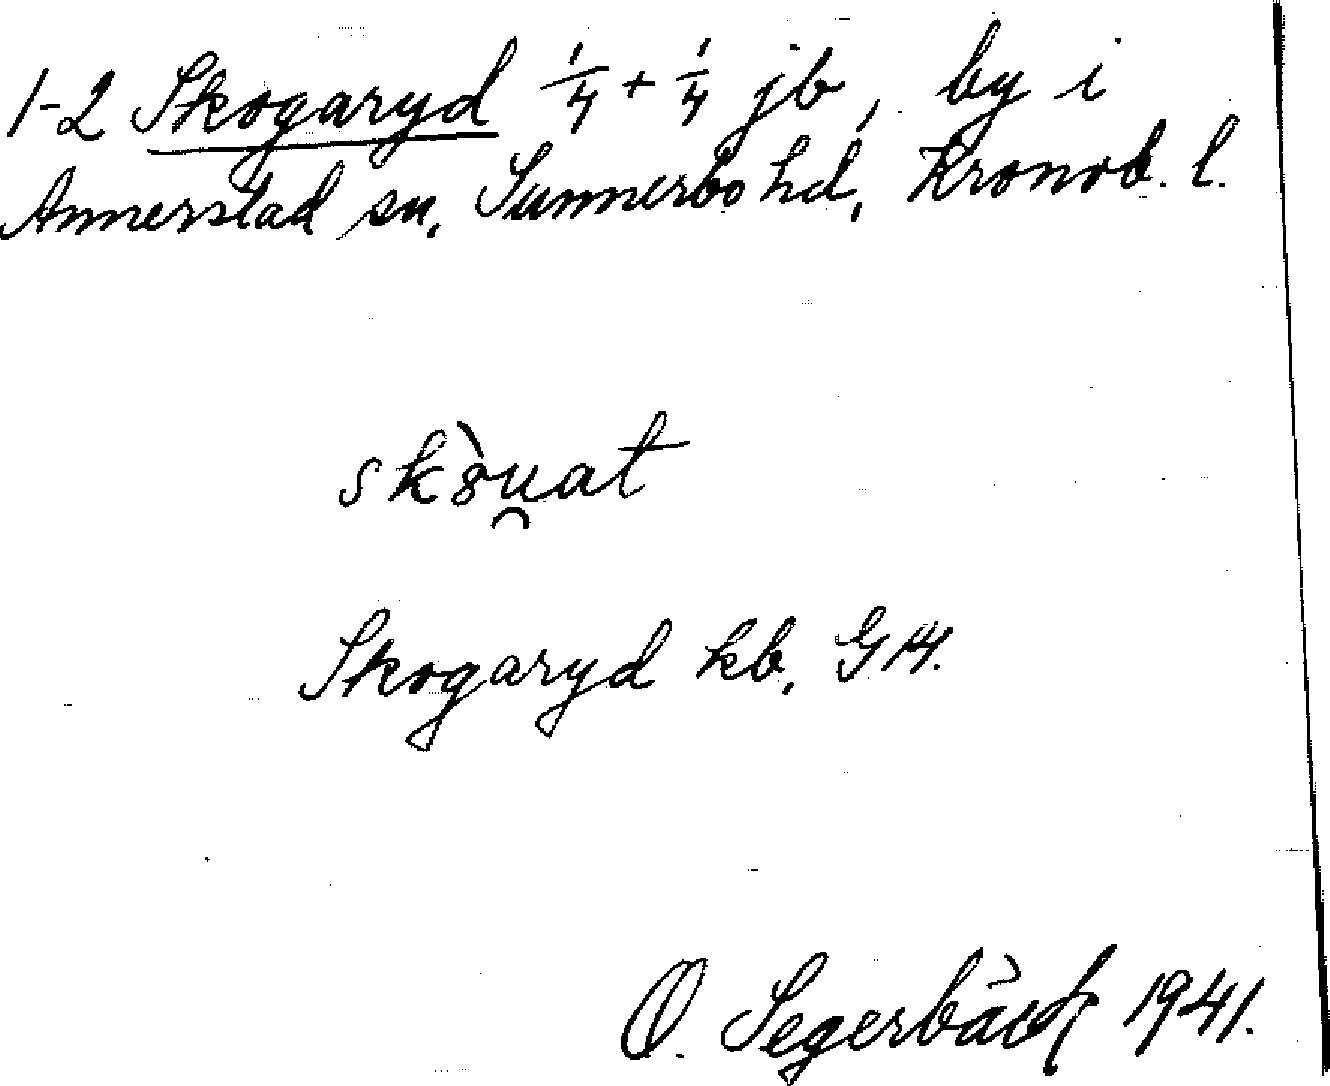 1-2 Skogaryd 1/4 + 1/4 jb, by i
Annerstad sn, Sunnerbo hd, Kronob. l.
sk8̀u̯at
Skogaryd kb, G14.
O. Segerbäck 1941.